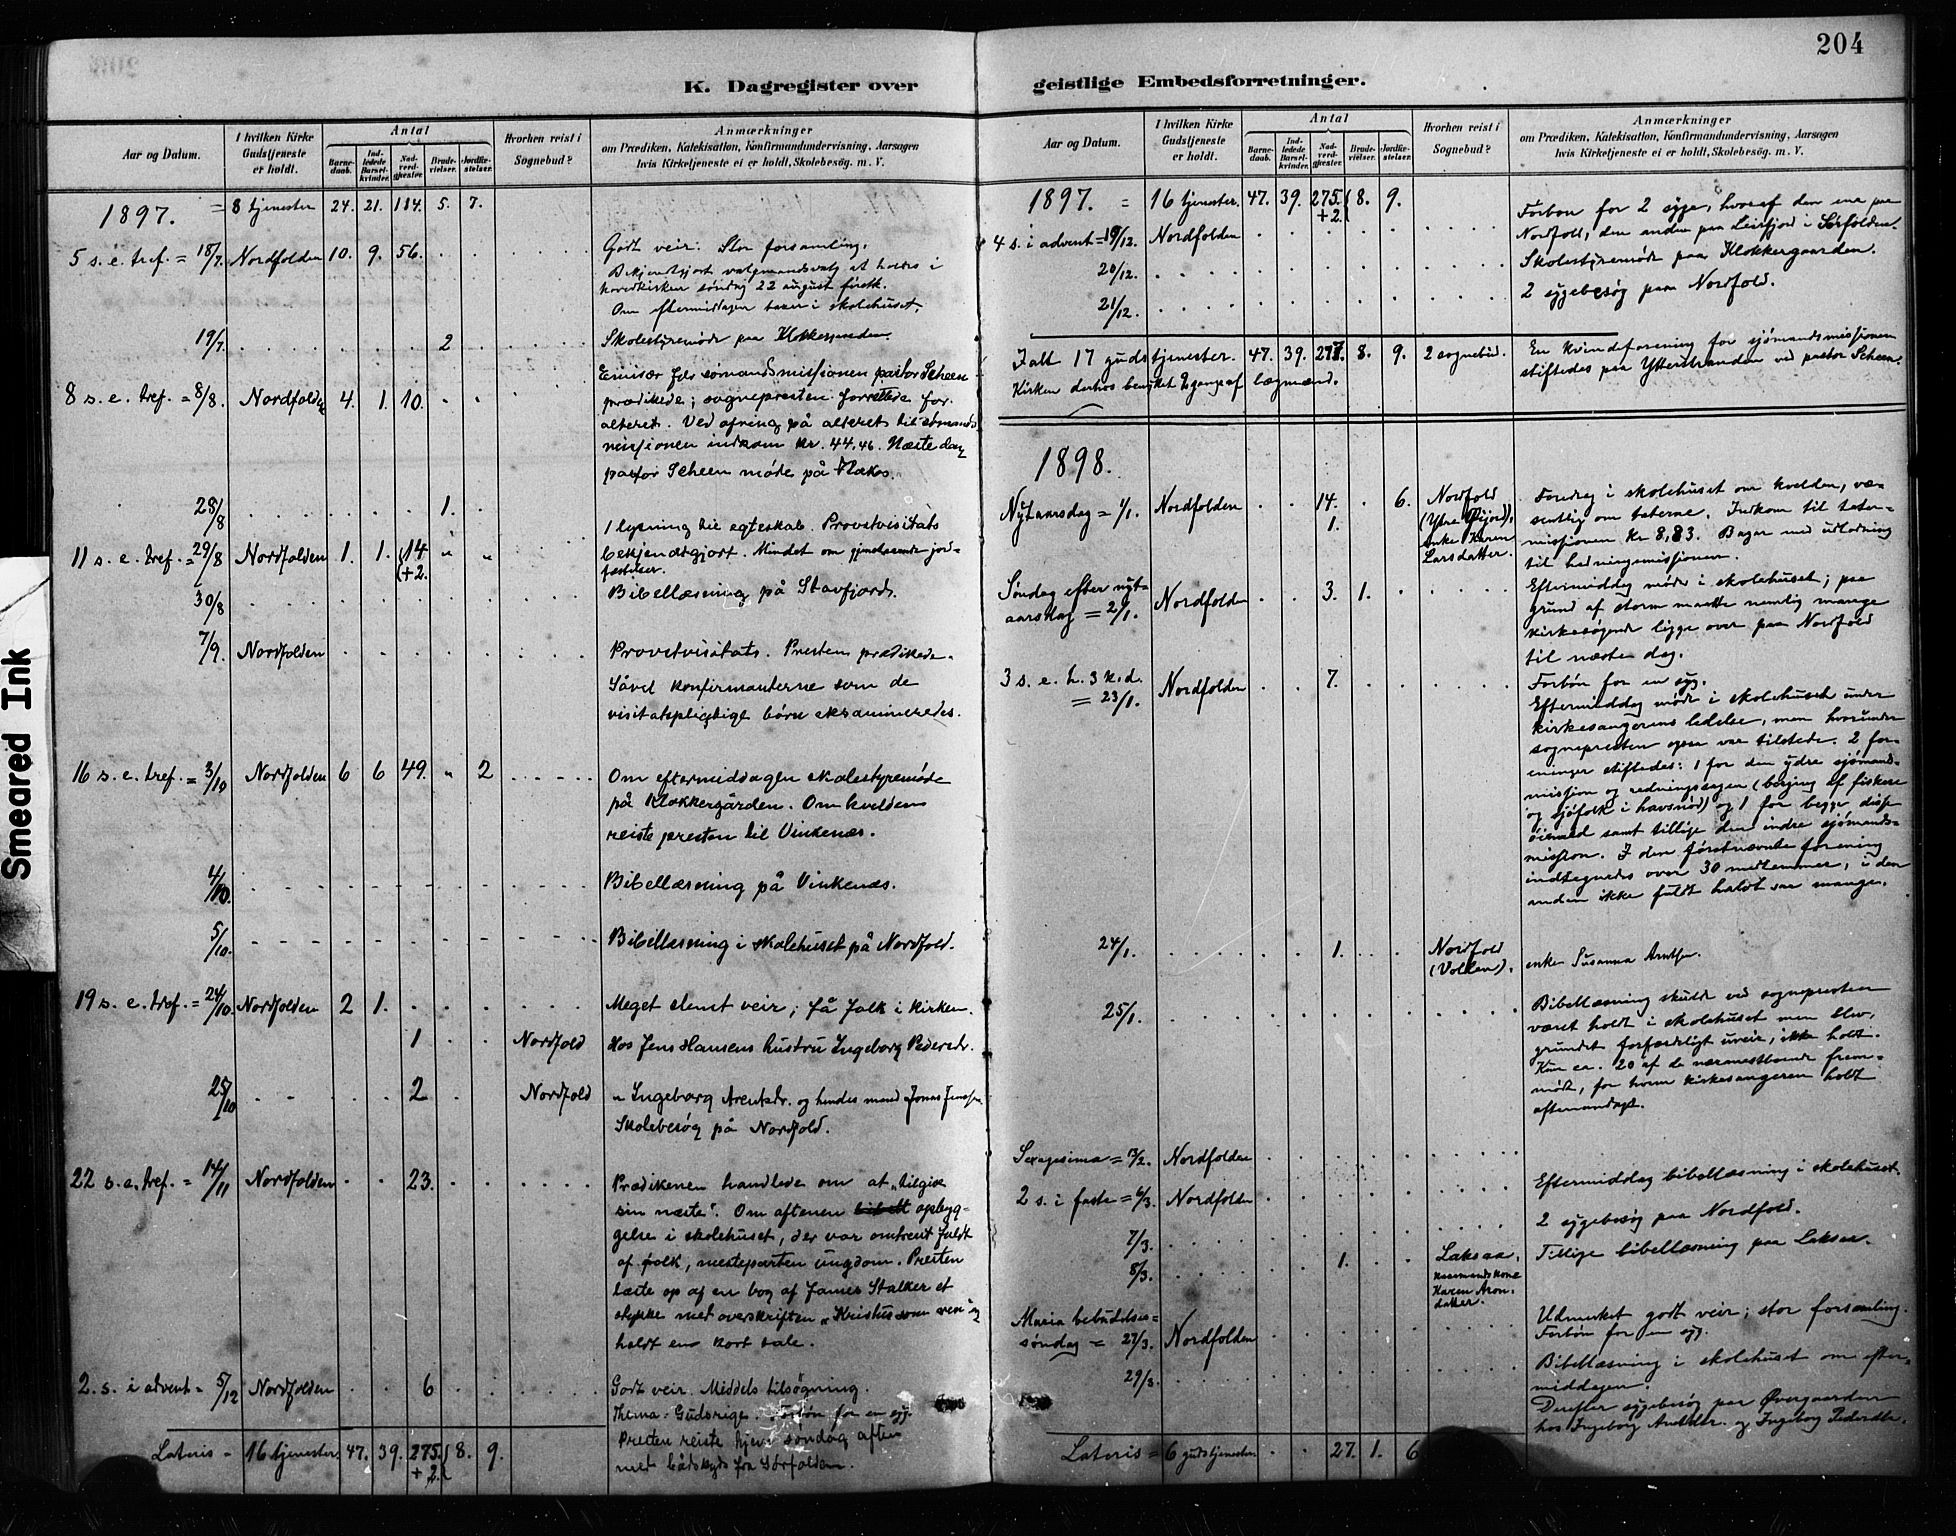 204
K. Dagregister over geistlige Embedsforretninger.
Aar og Datum.
I hvilken Kirke Gudstjeneste er holdt.
Antal
Barnedaab.
Indledede Barselkvinder.
Nadverdgjester.
Brudevielser.
Jordfæstelser.
Hvorhen reist i Sognebud?
Anmærkninger
om Prædiken, Katekisation, Konfirmandundervisning, Aarsagen
hvis Kirketjeneste ei er holdt, Skolebesög. m. V.
1897. = 8 tjenester 24. 21. 114. 5. 7.
5 s. e. tref. = 18/7. Nordfolden 10. 9. 56. Godt veir. Stor forsamling.
Bekjendtgjort valgmandsvalg at holdes i
hovedkirken søndag 22 august førstk.
Om eftermiddagen taler i skolehuset.
19/7. 2 Skolestyremøde paa Klokkergaarden.
Emisær for sømandsmissionen pastor Scheen
8 s. e. tref. = 8/8. Nordfolden 4. 1. 10. prædikede; sognepresten forrettede for
alteret. Ved ofring på alteret til sømands
missionen indkom kr. 44,46. Næste dag
pastor Scheen møde på
28/8 1.
1 lysning til egteskab. Provstvisitats
11 s. e. tref. = 29/8 Nordfolden 1. 1. 14 + 2. bekjendtgjort. Mindet om gjenstaaende jord=
fæstelser.
30/8 Bibellæsning på Stavfjord.
7/9. Nordfolden Provstvisitats. Presten prædikede.
Såvel konfirmanterne som de
visitatspligtige børn eksamineredes.
16 s. e. tref. = 3/10 Nordfolden 6 6 49. " 2 Om eftermiddagen skolestyremøde
på Klokkergården. Om kvelden
reiste presten til Vinkenes.
4/10. Bibellæsning på Vinkenes.
5/10. Bibellæsning i skolehuset på Nordfold.
19 s. e. tref. = 24/10. Nordfolden 2 1. Meget slemt veir; få folk i kirken.
1 Nordfold Hos Jens Hansens hustru Ingeborg Pedersdr.
25/10 2 Nordfold " Ingeborg Arentsdr. og hendes mand Jonas
Skolebesøg på Nordfold.
22 s. e. tref. = 14/11 Nordfolden 23. Prædikenen handlede om at „tilgive
sin næste". Om aftenen opbyg=
gelse i skolehuset, der var omtrent fuldt
af folk, mesteparten ungdom. Presten
læste op af en bog af James Stalker et
stykke med overskriften „Kristus som ven" og
holdt en kort tale.
2. s. i advent = 5/12 Nordfolden 6 Godt veir. Middels tilsøgning.
Thema: Gudsrige. Forbøn for en syg.
Presten reiste hjem søndag aften
Lateris = 16 tjenester 47. 39. 275. + 2. 8. 9. med bådskyds fra Sørfolden.
Aar og Datum.
I hvilken Kirke Gudstjeneste er holdt.
Antal
Barnedaab.
Indledede Barselkvinder.
Nadverdgjester.
Brudevielser.
Jordfæstelser.
Hvorhen reist i Sognebud?
Anmærkninger
om Prædiken, Katekisation, Konfirmandundervisning, Aarsagen
hvis Kirketjeneste ei er holdt, Skolebesög. m. V.
1897. = 16 tjenester. 47. 39. 275. + 2. 8. 9. Forbøn for 2 syge, hvoraf den ene paa
4 s. i advent = 19/12. Nordfolden Nordfold, den anden paa Leirfjord i Sørfolden.
20/12. Skolestyremøde paa Klokkergaarden.
21/12. 2 sygebesøg paa Nordfold.
Ialt 17 gudstjenester. 47. 39. 277. 8. 9. 2 sognebud. En kvindeforening for sjömandsmissionen
stiftedes paa Ytterstranden ved pastor Scheen.
Kirken derhos benyttet 2 gange af lægmænd.
1898.
Nytaarsdag = 1/1. Nordfolden 14. 1. 6. Nordfold (Ytre ), enke Karen Larsdatter. Foredrag i skolehuset om kvelden, væ=
sentlig om taterne. Indkom til tater=
missionen kr 8,83. Bazar med udlodning
til hedningemissionen.
Søndag efter nyt= Eftermiddag møde i skolehuset; paa
aarsdag = 2/1. Nordfolden 3. 1. grund af storm maatte nemlig mange
kirkesøgende ligge over paa Nordfold
til næste dag.
3 s. e. h. 3 k. d. = 23/1. Nordfolden 7. Forbøn for en syg.
Eftermiddag møde i skolehuset under
kirkesangerens ledelse, men hvorunder
sognepresten ogsaa var tilstede. 2 for=
eninger stiftedes: 1 for den ydre sjömands=
mission og redningssagen (berging af fiskere
og sjöfolk i havsnød) og 1 for begge disse
øiemed samt tillige den indre sjömands=
mission. I den førstnævnte forening
indtegnedes over 30 medlemmer, i den
anden ikke fuldt halvt saa mange.
24/1. 1. Nordfold (Vollen). enke Susanna
25/1. Bibellæsning skulde ved sognepresten
været holdt i skolehuset men blev,
grundet forfærdeligt uveir, ikke holdt.
Kun ca. 20 af de nærmestboende frem=
mødt, for hvem kirkesangeren holdt
aftenandagt.
Sexagesima = 13/2. Nordfolden Eftermiddag bibellæsning i skolehuset.
2 s. i faste = 6/3. Nordfolden
7/3. 2 sygebesøg paa Nordfold.
8/3. 1. Laksaa. Tillige bibellæsning paa Laksaa.
Maria bebudelses= Udmerket godt veir; stor forsamling.
søndag = 27/3. Nordfolden Forbøn for en syg.
29/3. Bibellæsning i skolehuset om efter=
middagen.
Derefter sygebesøg paa Øvergaarden
hos Ingeborg Arentsdtr. og Ingeborg Pedersdtr.
Lateris = 6 gudstjenester. 27. 1. 6
Smeared Ink